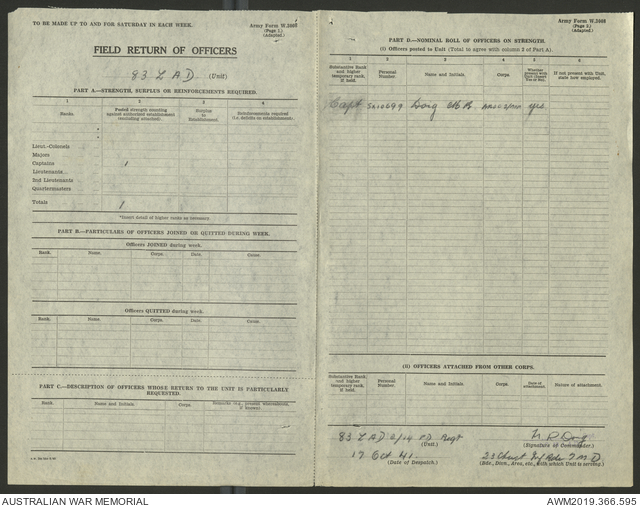 TO BE MADE UP TO AND FOR SATURDAY IN EACH WEEK.
Army Form W.3008
(Page 1)
(Adapted.)
FIELD RETURN OF OFFICERS
83 L A D (Unit)
PART A.—STRENGTH, SURPLUS OR REINFORCEMENTS REQUIRED.
1 2 3 4
Ranks. Posted strength counting against authorized establishment (excluding attached). Surplus to Establishment. Reinforcements required (i.e. deficits on establishment).
Lieut.-Colonels
Majors
Captains 1
Lieutenants
2nd Lieutenants
Quartermasters
Totals 1
*Insert detail of higher ranks as necessary.
PART B.—PARTICULARS OF OFFICERS JOINED OR QUITTED DURING WEEK.
Officers JOINED during week.
Rank. Name. Corps. Date. Cause.
Officers QUITTED during week.
Rank. Name. Corps. Date. Cause.
PART C.—DESCRIPTION OF OFFICERS WHOSE RETURN TO THE UNIT IS PARTICULARLY REQUESTED.
Rank. Name and Initials. Corps. Remarks (e.g., present whereabouts, if known).
Army Form W.3008
(Page 2)
(Adapted.)
PART D.—NOMINAL ROLL OF OFFICERS ON STRENGTH.
(i) Officers posted to Unit (Total to agree with column 2 of Part A).
1 2 3 4 5 6
Substantive Rank and higher temporary rank, if held. Personal Number. Name and Initials. Corps. Whether present with Unit (Insert Yes or No). If not present with Unit, state how employed.
Capt Doig yes.
(ii) OFFICERS ATTACHED FROM OTHER CORPS.
Substantive Rank and higher temporary rank, if held. Personal Number. Name and Initials. Corps. Date of attachment. Nature of attachment.
83 L A D 2/14 Regt
(Unit.) (Signature of Commander.)
17 Oct 41.
(Date of Despatch.) (Bde., Divn., Area, etc., with which Unit is serving.)
AUSTRALIAN WAR MEMORIAL
AWM2019.366.595